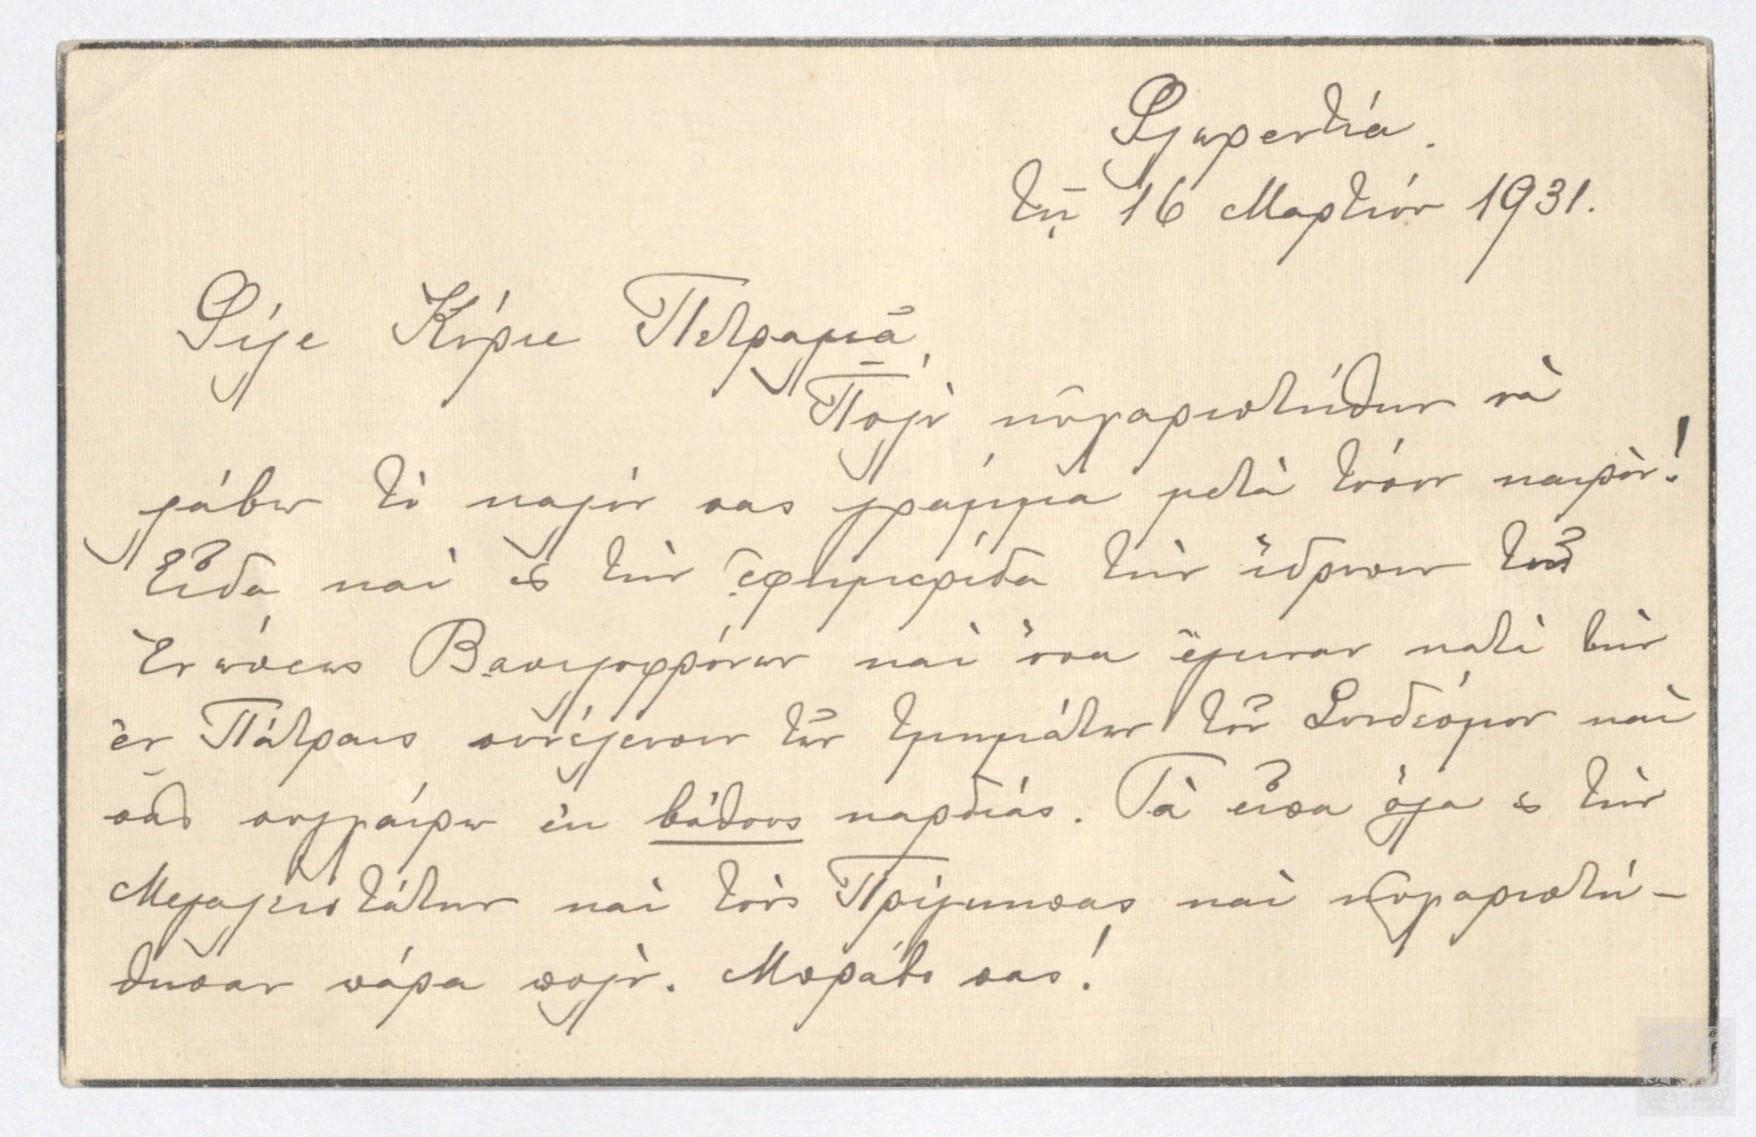 Φλωρεντία.
τῇ 16 Μαρτίου 1931.
Φίλε Κύριε Πετραλιᾶ,
Πολὺ ηὐχαριστήθην νὰ
λάβω τὸ καλόν σας γράμμα μετὰ τόσον καιρόν!
Εἶδα καὶ 'ς τὴν ἐφημερίδα τὴν ἵδρυσιν τοῦ
Ἑνώσεως Βασιλοφρόνων καὶ ὅσα ἔγιναν κατὰ τὴν
ἐν Πάτραις συνέλευσιν τῶν τμημάτων τοῦ Συνδέσμου καὶ
σᾶς συγχαίρω ἐκ βάθους καρδιάς. Τὰ εἶπα ὅλα 'ς τὴν
Μεγαλειοτάτην καὶ τοὺς Πρίγκηπας καὶ ηὐχαριστή-
θησαν πάρα πολὺ. Μπράβο σας!